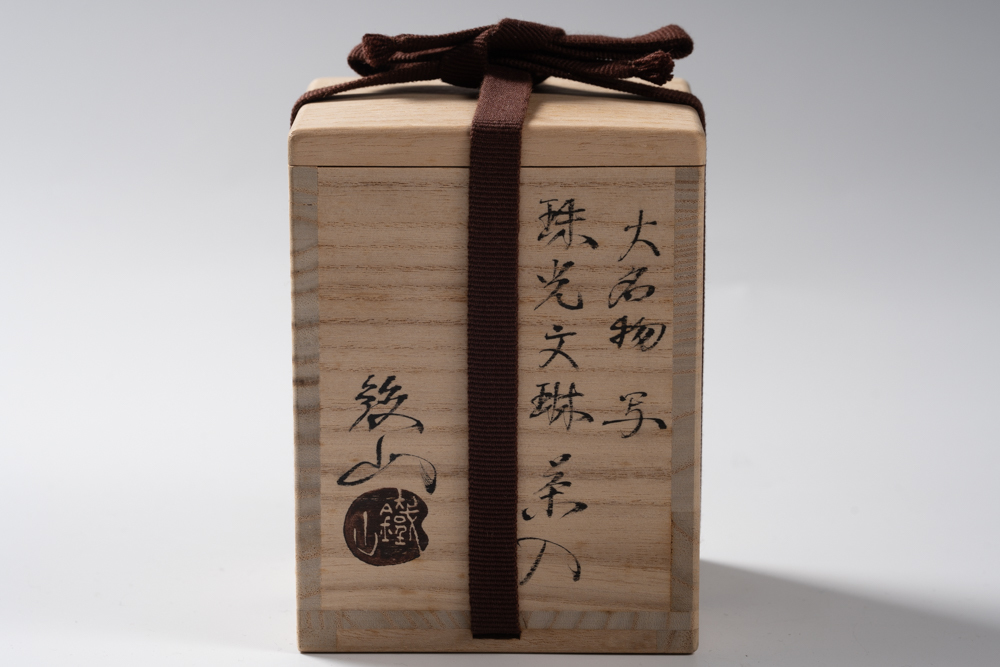 大名物 写
珠光文琳 茶入
鉄山
鐵山